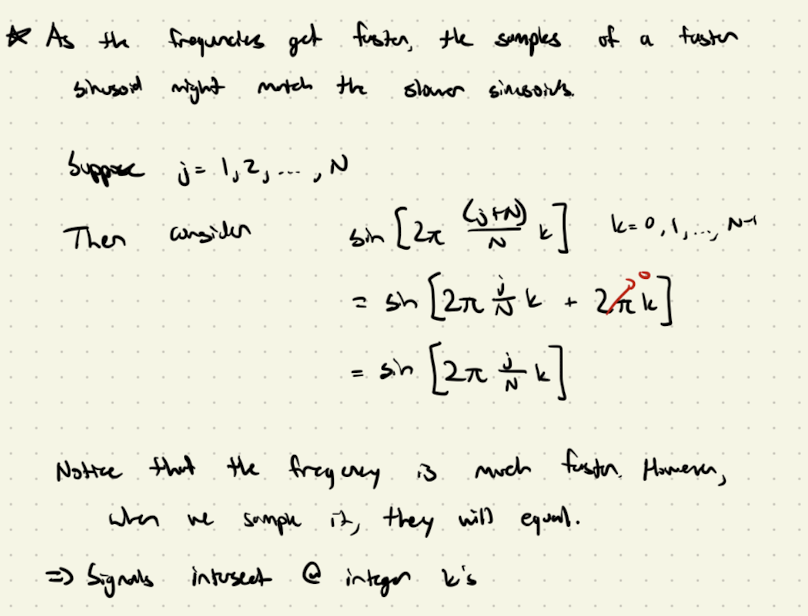 ☆ As the frequencies get faster, the samples of a faster
sinusoid might match the slower sinusoids.
Suppose j = 1, 2, ..., N
Then consider sin [2π (j+N)/N k] k = 0, 1, ..., N-1
= sin [2π j/N k + 2πk] 0
= sin [2π j/N k]
Notice that the frequency is much faster. However,
when we sample it, they will equal.
⇒ Signals intersect @ integer k's